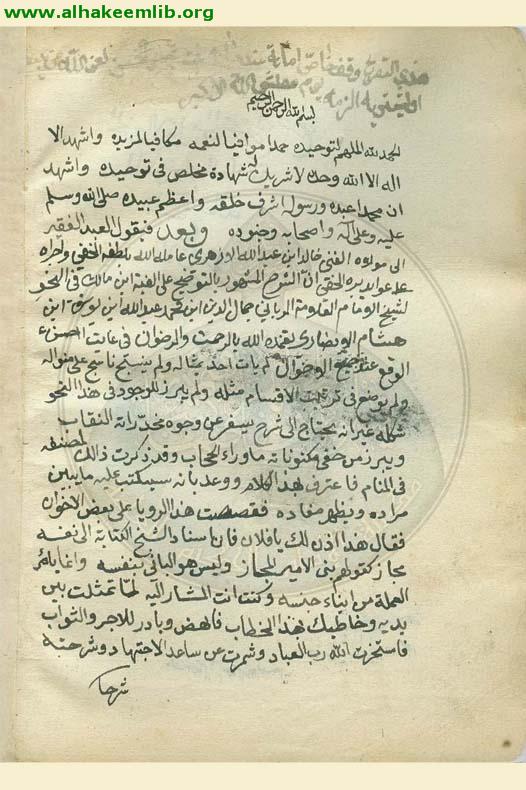 www.alhakeemlib.org
بسم الله الرحمن الرحيم
الحمد لله الملهم لتوحيده حمدا موافيا لنعمه مكافيا لمزيده واشهد ان لا
اله الا الله وحده لا شريك له شهادة مخلص في توحيده واشهد
ان محمدا عبده ورسوله اشرف خلقه واعظم عبيده صلى الله وسلم
عليه وعلى آله واصحابه وجنوده وبعد فيقول العبد الفقير
الى مولاه الغني خالد ابن عبد الله الازهري عامله الله بلطفه الخفي واجراه
على عوايد بره الحفي ان الشرح المشهور بالتوضيح على الفية ابن مالك في النحو
لشيخ الامام العلامة الرباني جمال الدين ابن محمد عبد الله ابن يوسف ابن
هشام الانصاري تغمده الله بالرحمت والرضوان في غايت الحسن
الوقع عند جميع الاخوان لم يات احد بمثاله ولم ينسج ناسج على منواله
ولم يوضع في ترتيب الاقسام مثله ولم يبرز للوجود في هذا النحو
شكله غير انه يحتاج الى شرح يسفر عن وجوه مخدراته النقاب
ويبرز من خفي مكنوناته ما وراء الحجاب وقد ذكرت ذالك لمصنفه
في المنام فاعترف بهذا الكلام ووعد بانه سيكتب عليه ما يبين
مراده ويظهر مفاده فقصصت هذا الرويا على بعض الاخوان
فقال هذا اذن لك يا فلان فان اسناد الشيخ الكتابة الى نفسه
مجاز كقولهم بنى الامير المجاز وليس هو الباني بنفسه وانما يامر
العملة من ابناء جنسه وكنت انت المشار اليه لما تمثلت بين
يديه وخاطبك بهذا الخطاب فانهض وبادر للاجر والثواب
فاستخرت الله رب العباد وشمرت عن ساعد الاجتهاد وشرحته
شرحا